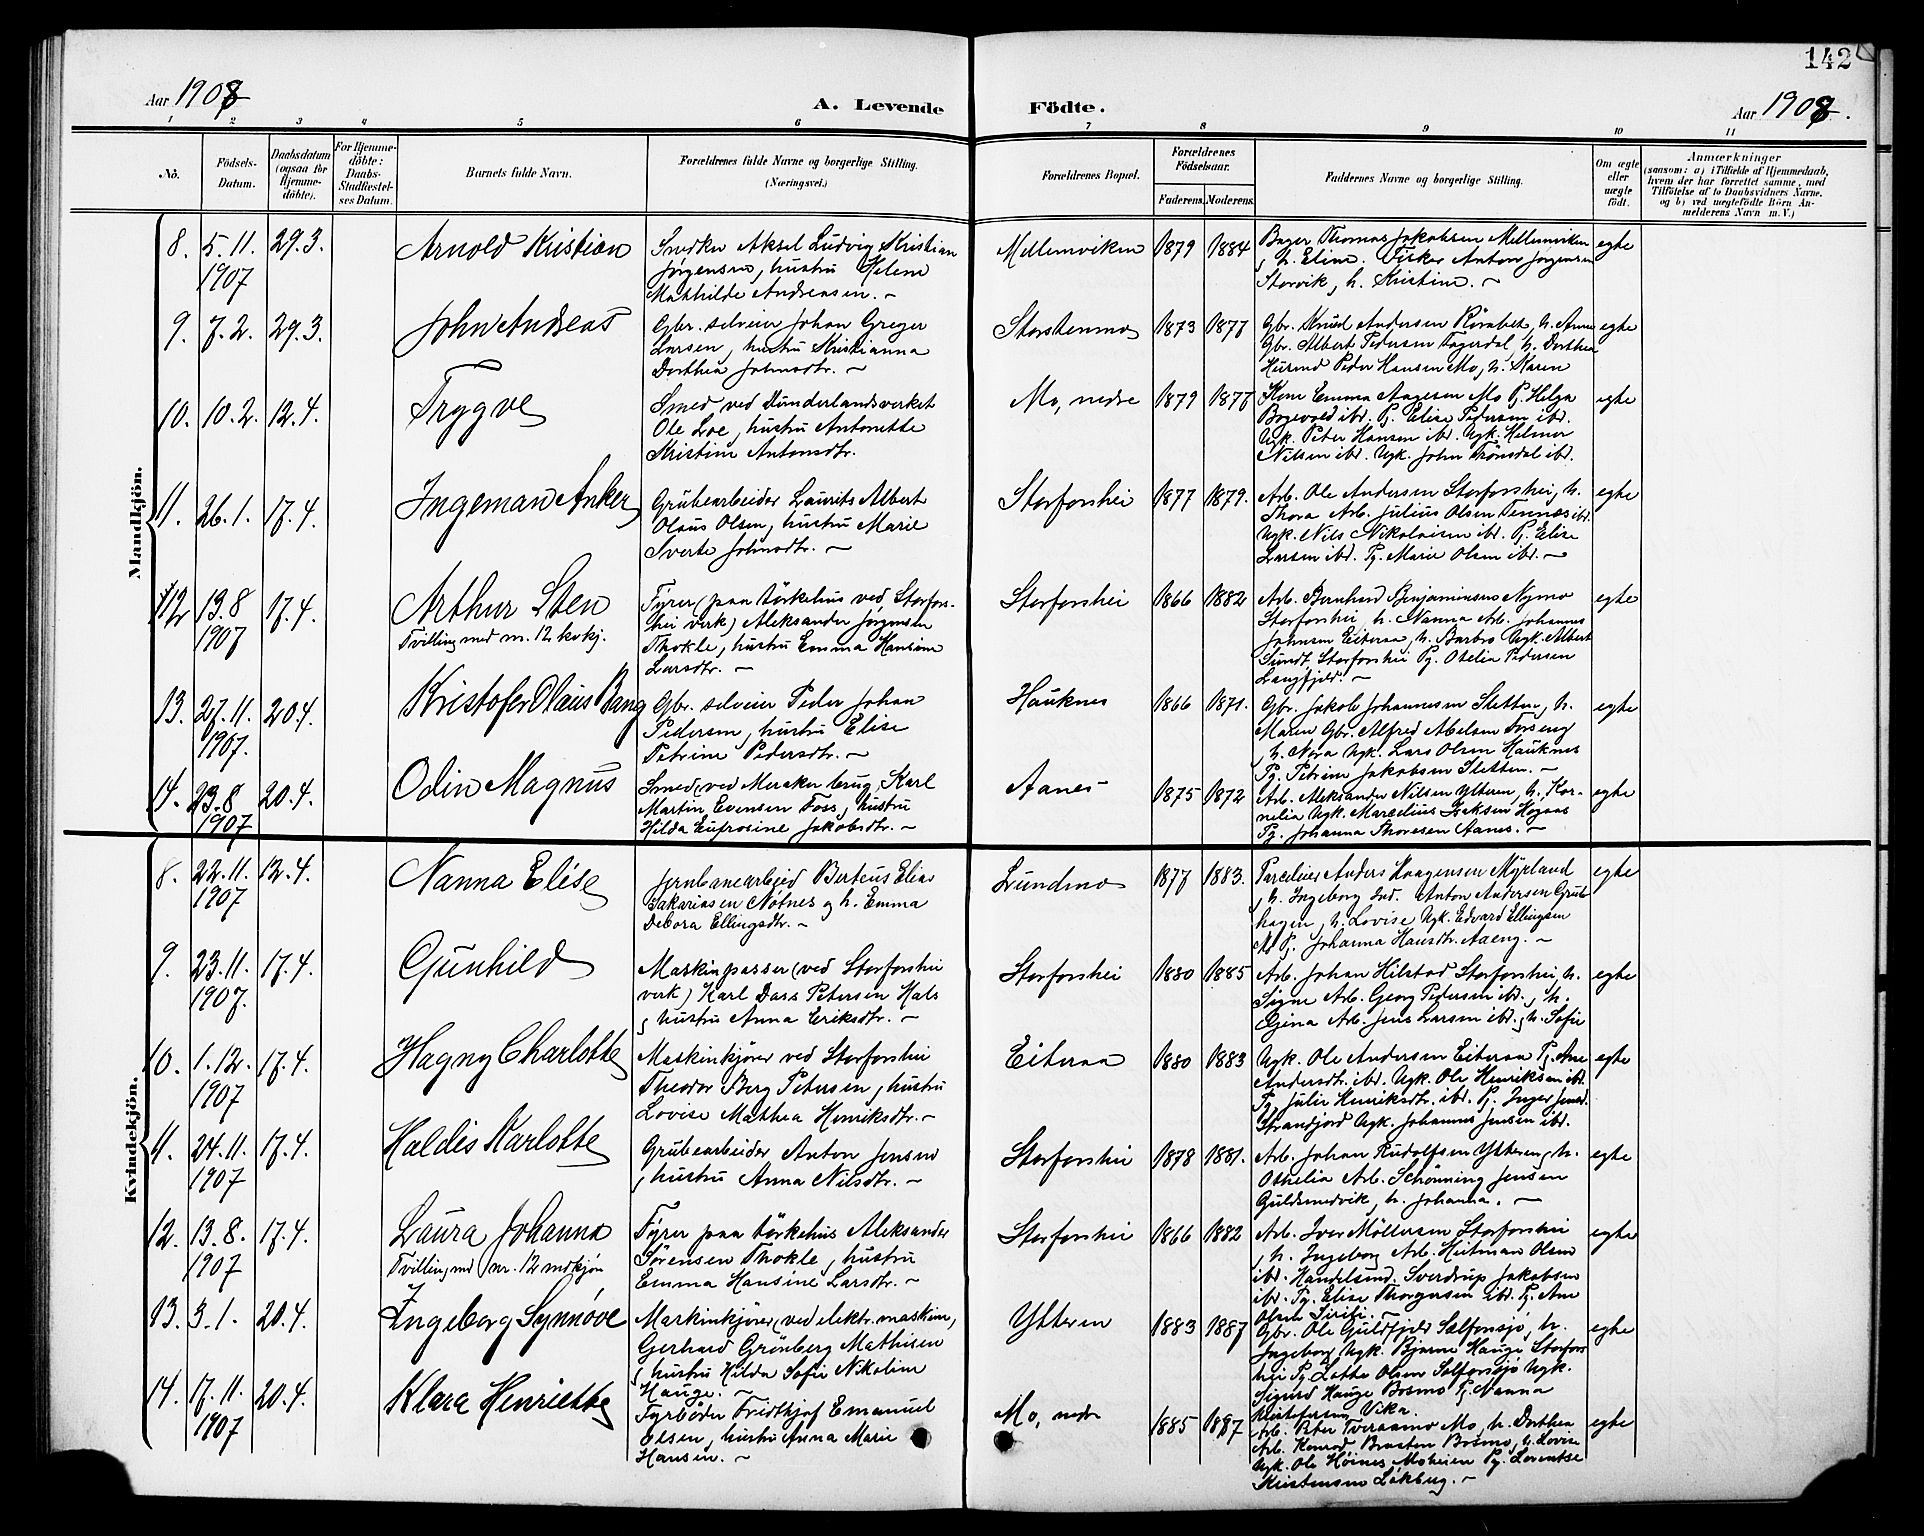 142
Aar 1908
A. Levende
Födte.
Aar 1908.
1 2 3 4 5 6 7 8 9 10 11
No.
Födsels-
Datum.
Daabsdatum
(ogsaa for
Hjemme-
döbte).
For Hjemme-
döbte:
Daabs-
Stadfæstel-
ses Datum.
Barnets fulde Navn.
Forældrenes fulde Navne og borgerlige Stilling.
(Næringsvei.)
Forældrenes Bopæl.
Forældrenes
Födselsaar.
Faderens.
Moderens.
Faddernes Navne og borgerlige Stilling.
Om ægte
eller
uægte
födt.
Anmærkninger
(saasom: a) i Tilfælde af Hjemmedaab,
hvem der har forrettet samme, med
Tilföielse af to Daabsvidners Navne,
og b) ved uægtefödte Börn An-
melderens Navn m. V.)
Mandkjön.
8. 5.11. 1907 29.3. Arnold Kristian
Snedker Aksel Ludvig Kristian
Jörgensen, hustru Helene
Mathilde Andreasen. ~
Mellemviken 1879 1884
Bager Thomas Jakobsen Mellemviken
, h. Eline. Fisker Anton Jörgensen
Storvik, h. Kristine. ~
egte
9. 7.2. 29.3. John Andreas
Gbr. selveier Johan Greger
Larsen, hustru Kristianna
Dorthea Johnsdtr. ~
Storstenmo 1873 1877
Gbr. Knud Andersen, h. Anne
Gbr. Albert Pedersen Fagerdal h. Dorthea
Husmd Peder Hansen Mo, h. Karen
egte
10. 10.2. 12.4. Trygve
Smed ved Dunderlandsverket
Ole Loe, hustru Antonette
Kristine Antonsdtr.
Mo, nedre 1879 1877
Kone Emma Aagesen Mo Pj. Helga
ibd. Pj. Elise Pedersen ibd.
Ugk. Peter Hansen ibd. Ugk. Helmer
Nilsen ibd. Ugk. John Trönsdal ibd.
egte
11. 26.1. 17.4. Ingeman Anker
Grubearbeider Laurits Albert
Olaus Olsen, hustru Marie
Sverte Johnsdtr. ~
Storforshei 1877 1879.
Arb. Ole Andersen Storforshei, h.
Thora Arb. Julius Olsen Tennes ibd.
Ugk. Nils Nikolaisen ibd. Pj. Elise
Larsen ibd. Pj. Marie Olsen ibd. ~
egte
12 13.8 1907 17.4. Arthur Sten
Tvilling med nr. 12 kvkj.
Fyrer (paa törkehus ved Storfors-
hei verk) Aleksander Jörgensen
Thokle, hustru Emma Hansine
Larsdtr. ~
Storforshei 1866 1882
Arb. Bernhard Benjaminsen Nymo
Storforshei, h. Nanna Arb. Johannes
Johnsen Eiteraa, h. Barbro Ugk. Albert
Sundt, Storforshei Pj. Othelia Pedersen
Langfjeld. ~
egte
13. 27.11. 1907. 20.4. Kristofer Olaus Bang
Gbr. selveier Peder Johan
Pedersen, hustru Elise
Petrine Pedersdtr. ~
Hauknes 1866 1871.
Gbr. Jakob Johannesen Sletten, h.
Maren Gbr. Alfred Abelsen Forseng
, h. Nora Ugk. Lars Olsen Hauknes
Pj. Petrine Jakobsen Sletten. ~
egte
14. 23.8 1907 20.4. Odin Magnus
Smed (ved Meraker brug) Karl
Martin Evensen Foss, hustru
Hilda Eufrosine Jakobsdtr. ~
Aanes 1875 1872
Arb. Aleksander Nilsen Ytteren, h. Kor-
nelia Ugk. Marcelius Isaksen Hogaas
Pj. Johanna Thoresen Aanes. ~
egte
Kvindekjön.
8. 22.11. 1907 12.4. Nanna Elise
Jernbanearbejd Berteus Elias
Sakariasen Nötnes og h. Emma
Debora Ellingsdtr. ~
Lundmo 1877 1883.
Parcelleier Anders Haagensen Myrland
, h. Ingeborg Ind. Anton Andersen Grube-
hagen, h. Lovise, Ugk. Edvard Ellingsen
Pj. Johanna Hansdtr. Aaeng. ~
egte
9. 23.11. 1907. 17.4. Gunhild
Maskinpasser (ved Storforshei
verk) Karl Dass Petersen Hals
, hustru Anna Eriksdtr. ~
Storforshei 1880 1885
Arb. Johan Hilstad Storforshei, h.
Signe Arb. Georg Pedersen ibd., h.
Gjina Arb. Jens Larsen ibd., h. Sofie
egte
10. 1.12. 1907 17.4. Hagny Charlotte
Maskinkjörer ved Storforshei
Theodor Berg Petersen, hustru
Lovise Mathea Henriksdtr. ~
Eiteraa 1880 1883
Ugk. Ole Andersen Eiteraa Pj. Ane
Andersdtr. ibd. Ugk. Ole Henriksen ibd.
Pj. Julie Henriksdtr. ibd. Pj. Inger Jensd.
Strandjord Ugk. Johannes Jensen ibd.
egte
11. 24.11. 1907 17.4. Haldis Karlotte
Grubearbeider Anton Jensen
, hustru Anna Nilsdtr. ~
Storforshei 1878 1881.
Arb. Johan Rudolfsen Ytteren, h.
Othelia Arb. Schönning Jensen
Guldsmedvik, h. Johanna. ~
egte
12. 13.8. 1907 17.4. Laura Johanna
Tvilling med nr. 12 mdkjön
Fyrer paa törkehus Aleksander
Sörensen Thokle, hustru
Emma Hansine Larsdtr. ~
Storforshei 1866 1882
Arb. Iver Möllersen Storforshei
, h. Ingeborg Arb. Hitman Olsen
ibd. Handelsmd. Sverdrup Jakobsen
ibd. Pj. Elise Thorgersen ibd. Pj. Ane
Olsen
egte
13. 3.1. 20.4. Ingeborg Synnöve
Maskinkjörer (ved elektr. maskine,
Gerhard Grönberg Mathisen
, hustru Hilda Sofie Nikoline
Hauge. ~
Ytteren 1883 1887
Gbr. Ole Guldfjeld Selforssjö, h.
Ingeborg Ugk. Bjarne Hauge Storfors
hei Pj. Lotte Olsen Selforssjö Ugk.
Sigurd Hauge Bosmo Pj. Nanna
Kristofersen Vika.
egte
14. 17.11. 1907 20.4. Klara Henriette
Fyrböder Fridthjof Emanuel
Olsen, hustru Anna Marie
Hansen. ~
Mo, nedre 1885 1887
Arb. Peter Tveraamo Mo, h. Dorthea
Arb. Konrad Braaten Bosmo, h. Lovise
Ugk. Ole Höines Moheien Pj. Lorentse
Kristensen Lökberg. ~
egte